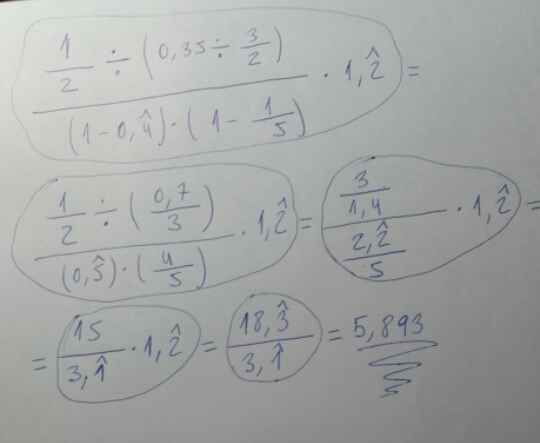 \frac{\frac{1}{2} ÷ (0,35 ÷ \frac{3}{2})}{(1 - 0,\hat{4}) · (1 - \frac{1}{5})} · 1,\hat{2} =
\frac{\frac{1}{2} ÷ (\frac{0,7}{3})}{(0,\hat{5}) · (\frac{4}{5})} · 1,\hat{2} = \frac{\frac{3}{1,4}}{\frac{2,\hat{2}}{5}} · 1,\hat{2} =
= \frac{15}{3,\hat{1}} · 1,\hat{2} = \frac{18,\hat{3}}{3,\hat{1}} = 5,893